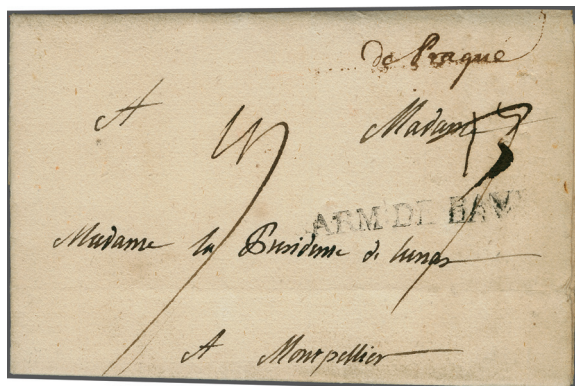 de Prague
A Madame
ARM DE BAV
Madame la Presidente de Lunas
A Montpellier